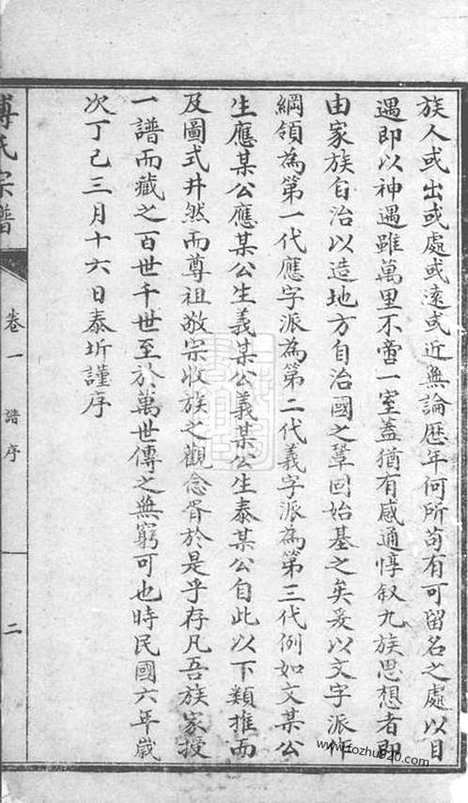 族人或出或處或遠或近無論歷年何所苟有可留名之處以目
遇即以神遇雖萬里不啻一室蓋猶有感通惇叙九族思想者即
由家族自治以造地方自治國之鞏固始基之矣爰以文字派作
綱領為第一代應字派為第二代義字派為第三代例如文某公
生應某公應某公生義某公義某公生泰某公自此以下類推而
及圖式井然而尊祖敬宗收族之觀念胥於是乎存凡吾族家授
一譜而藏之百世千世至於萬世傳之無窮可也時民國六年歲
次丁巳三月十六日泰圻謹序
傅氏宗譜
卷一
譜序
二
www.tozhu920.com